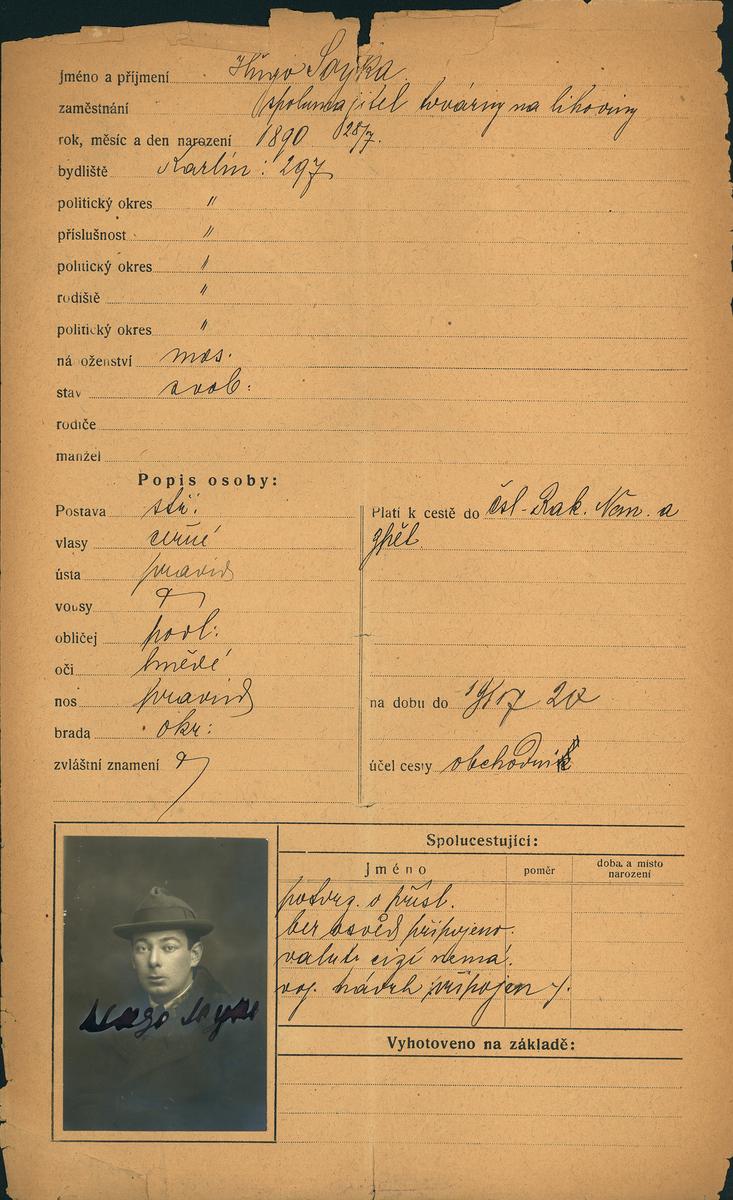 jméno a příjmení Hugo Soyka
zaměstnání spolumajitel továrny na lihoviny
rok, měsíc a den narození 1890 28/7.
bydliště Karlín: 297
politický okres "
příslušnost "
politický okres "
rodiště "
politický okres "
náboženství mos.
stav svob:
rodiče
manžel
Popis osoby:
Postava stř:
vlasy černé
ústa pravid
vousy
obličej podl:
oči hnědé
nos pravid
brada okr:
zvláštní znamení
Platí k cestě do čsl. Rak. Něm. a
zpět.
na dobu do 20
účel cesty obchodní
Spolucestující:
Jméno poměr doba a místo narození
potvrz. o přísl.
ber osvěd připojeno.
valut cizí nemá.
voj. návrh připojen
Hugo Soyka
Vyhotoveno na základě: